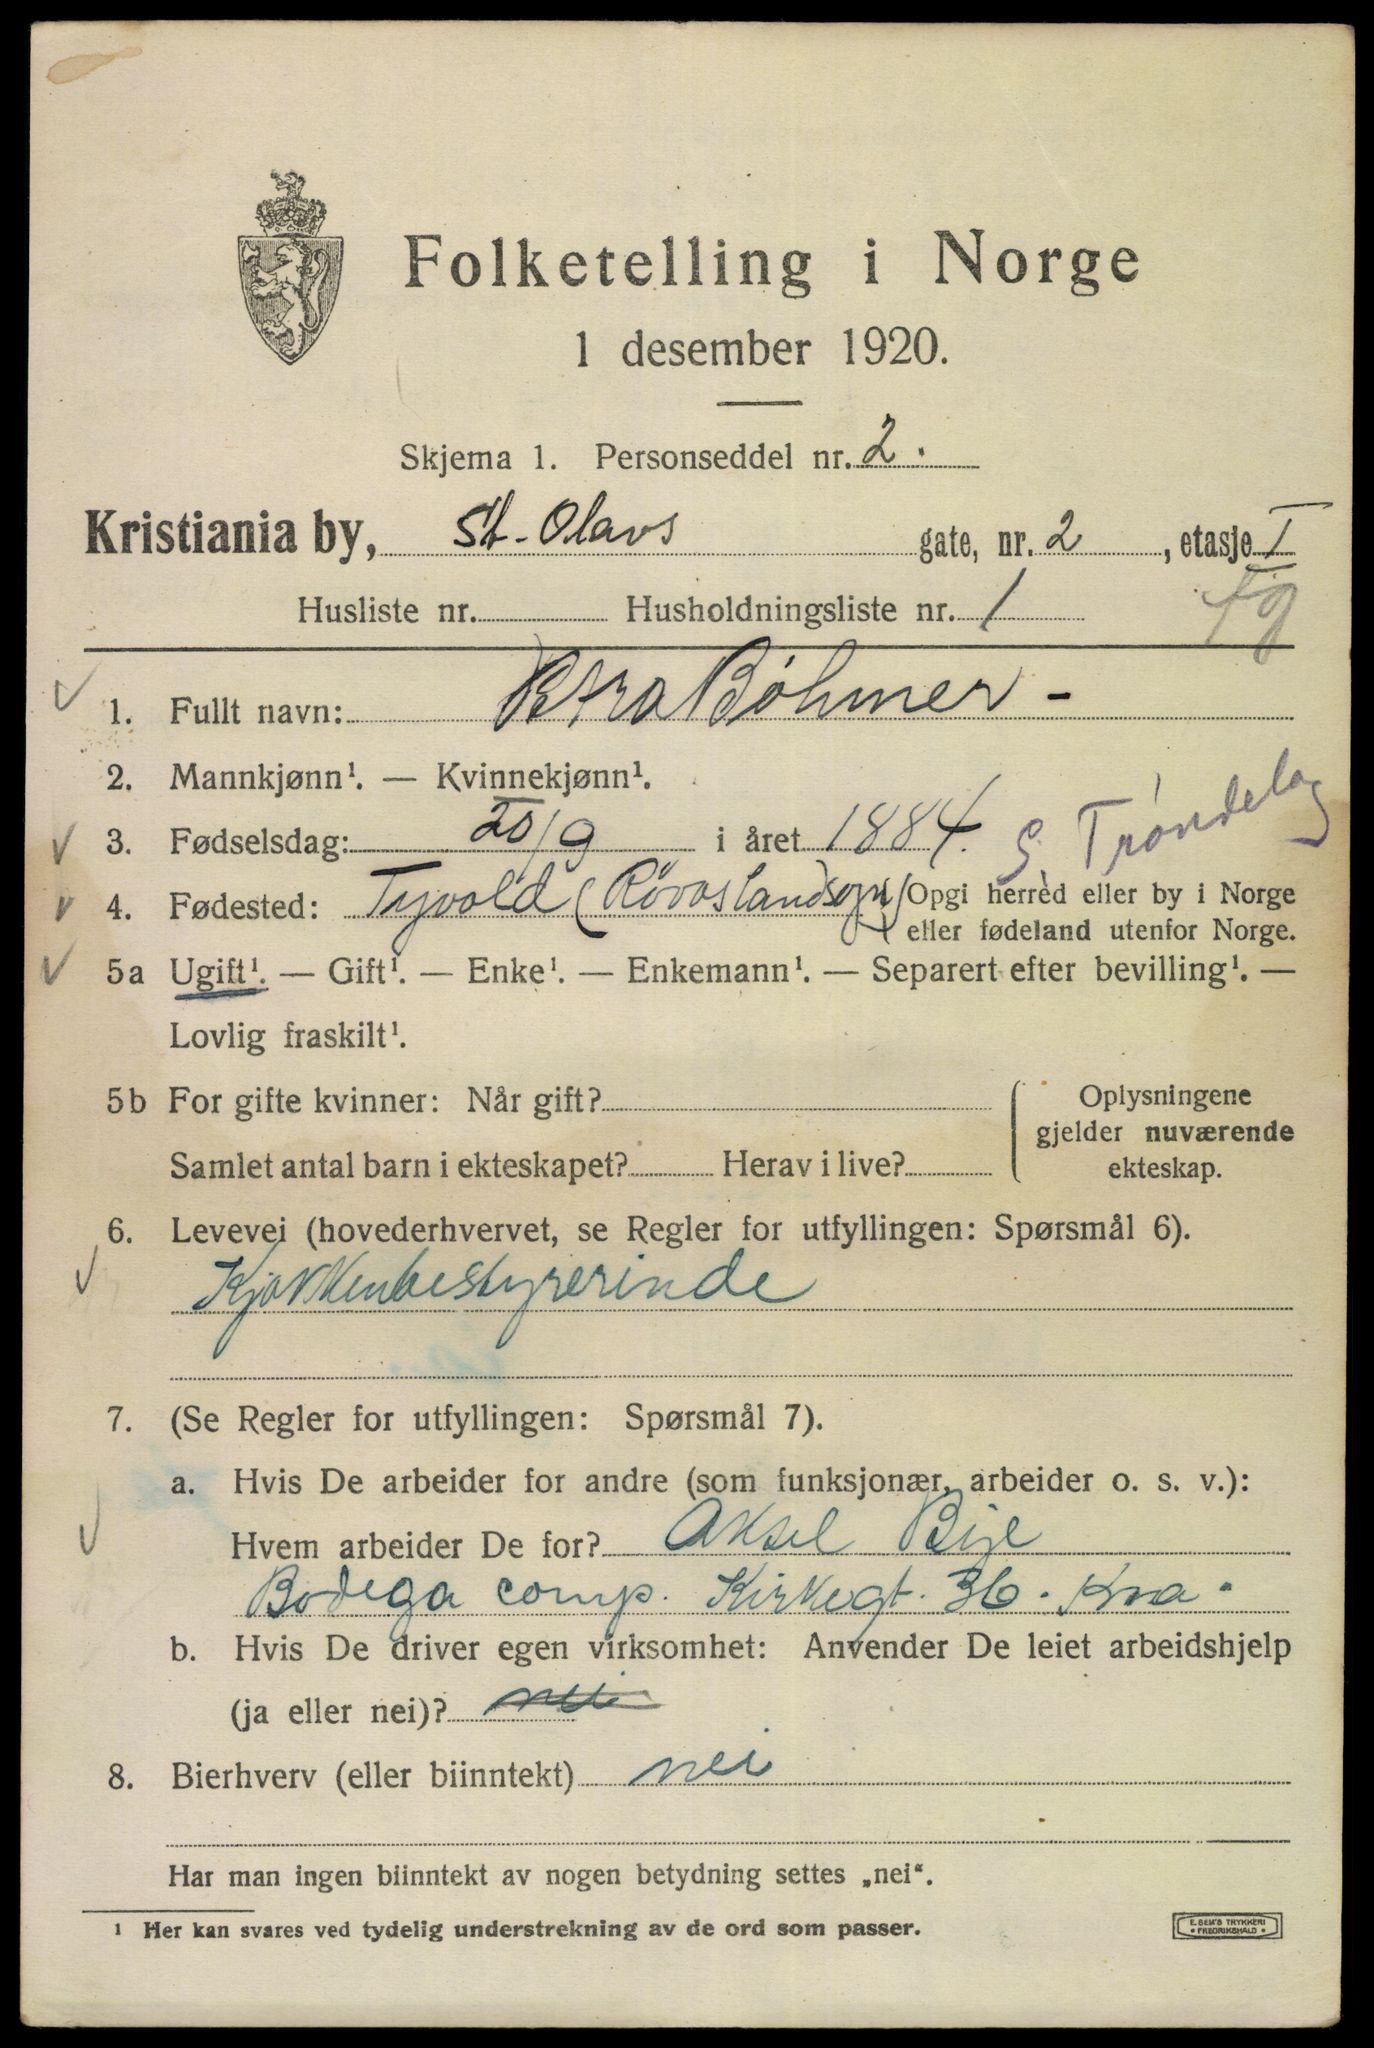 Folketelling i Norge
1 desember 1920.
Skjema 1. Personseddel nr. 2.
Kristiania by, St. Olavs gate, nr. 2, etasje I
Husliste nr. Husholdningsliste nr. 1
1. Fullt navn: Böhmer -
2. Mannkjønn¹. — Kvinnekjønn¹.
3. Fødselsdag: 20/9 i året 1884. S. Trøndelag
4. Fødested: Tyvold (Røros landsogn) Opgi herred eller by i Norge
eller fødeland utenfor Norge.
5a Ugift¹. — Gift¹. — Enke¹. — Enkemann¹. — Separert efter bevilling¹. —
Lovlig fraskilt¹.
5b For gifte kvinner: Når gift? Oplysningene
gjelder nuværende
Samlet antal barn i ekteskapet? Herav i live? ekteskap.
6. Levevei (hovederhvervet, se Regler for utfyllingen: Spørsmål 6).
Kjøkkenbestyrerinde
7. (Se Regler for utfyllingen: Spørsmål 7).
a. Hvis De arbeider for andre (som funksjonær, arbeider o. s. v.):
Hvem arbeider De for? Aksel
Bodega comp. Kirkegt. 36. Kra.
b. Hvis De driver egen virksomhet: Anvender De leiet arbeidshjelp
(ja eller nei)? nei
8. Bierhverv (eller biinntekt) nei
Har man ingen biinntekt av nogen betydning settes „nei“.
¹ Her kan svares ved tydelig understrekning av de ord som passer.
E. SEM'S TRYKKERI
• FREDRIKSHALD •